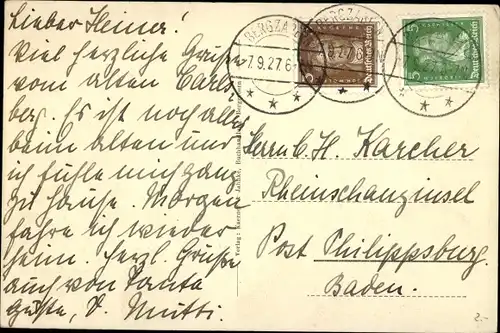 Lieber Heiner!
Viel herzliche Grüße
vom alten Carls
berg. Es ist noch alles
beim alten und
ich fühle mich ganz
zu Hause. Morgen
fahre ich wieder
heim. Herzl. Grüße
auch von Tante
Guste, d. Mutti.
BERGZABERN
7.9.27.6
BERGZABERN
9.27.6
3
Deutsches Reich
5
Deutsches Reich
Herrn C. H. Karcher
Rheinschanzinsel
Post Philippsburg.
Baden.
2.-